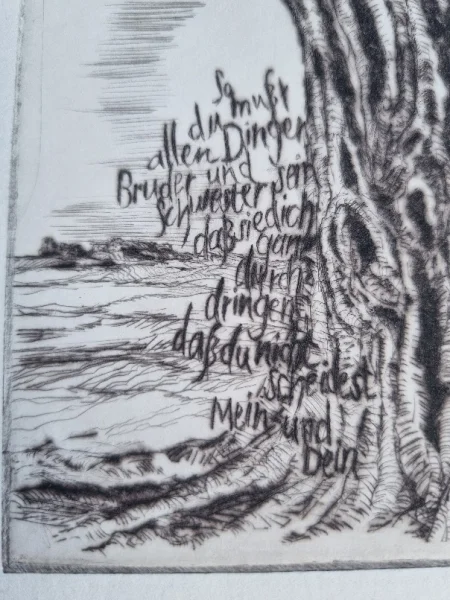 So
mußt
du
allen Dingen
Bruder und
Schwester sein
daß sie dich
ganz
durch
dringen
daß du nicht
scheidest
Mein und
Dein